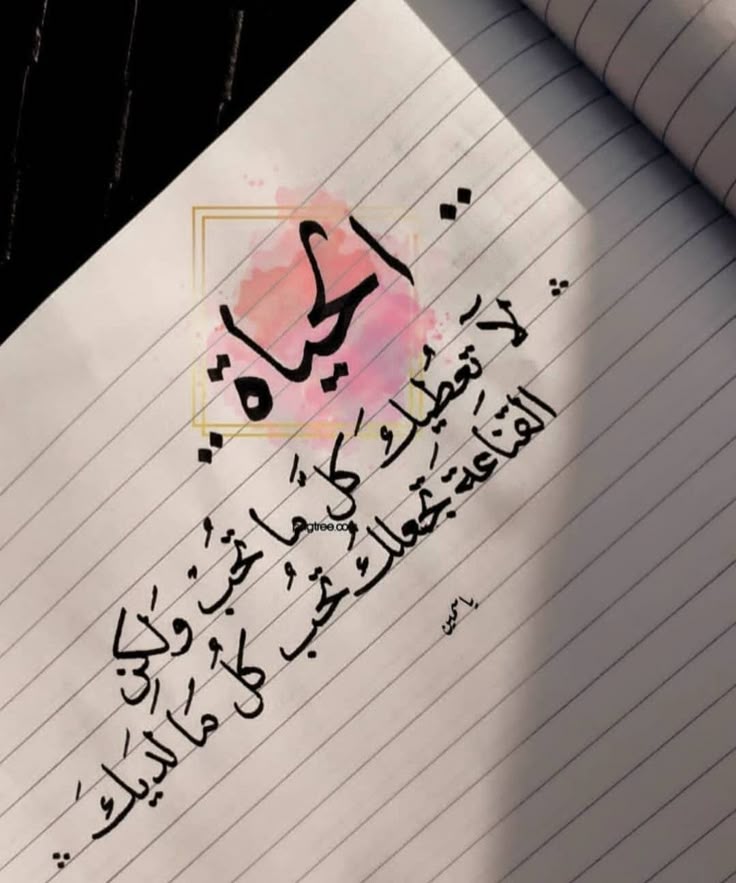 الحياة
لا تعطيك كل ما تحب ولكن
القناعة تجعلك تحب كل ما لديك
ياسمين
pngtree.com